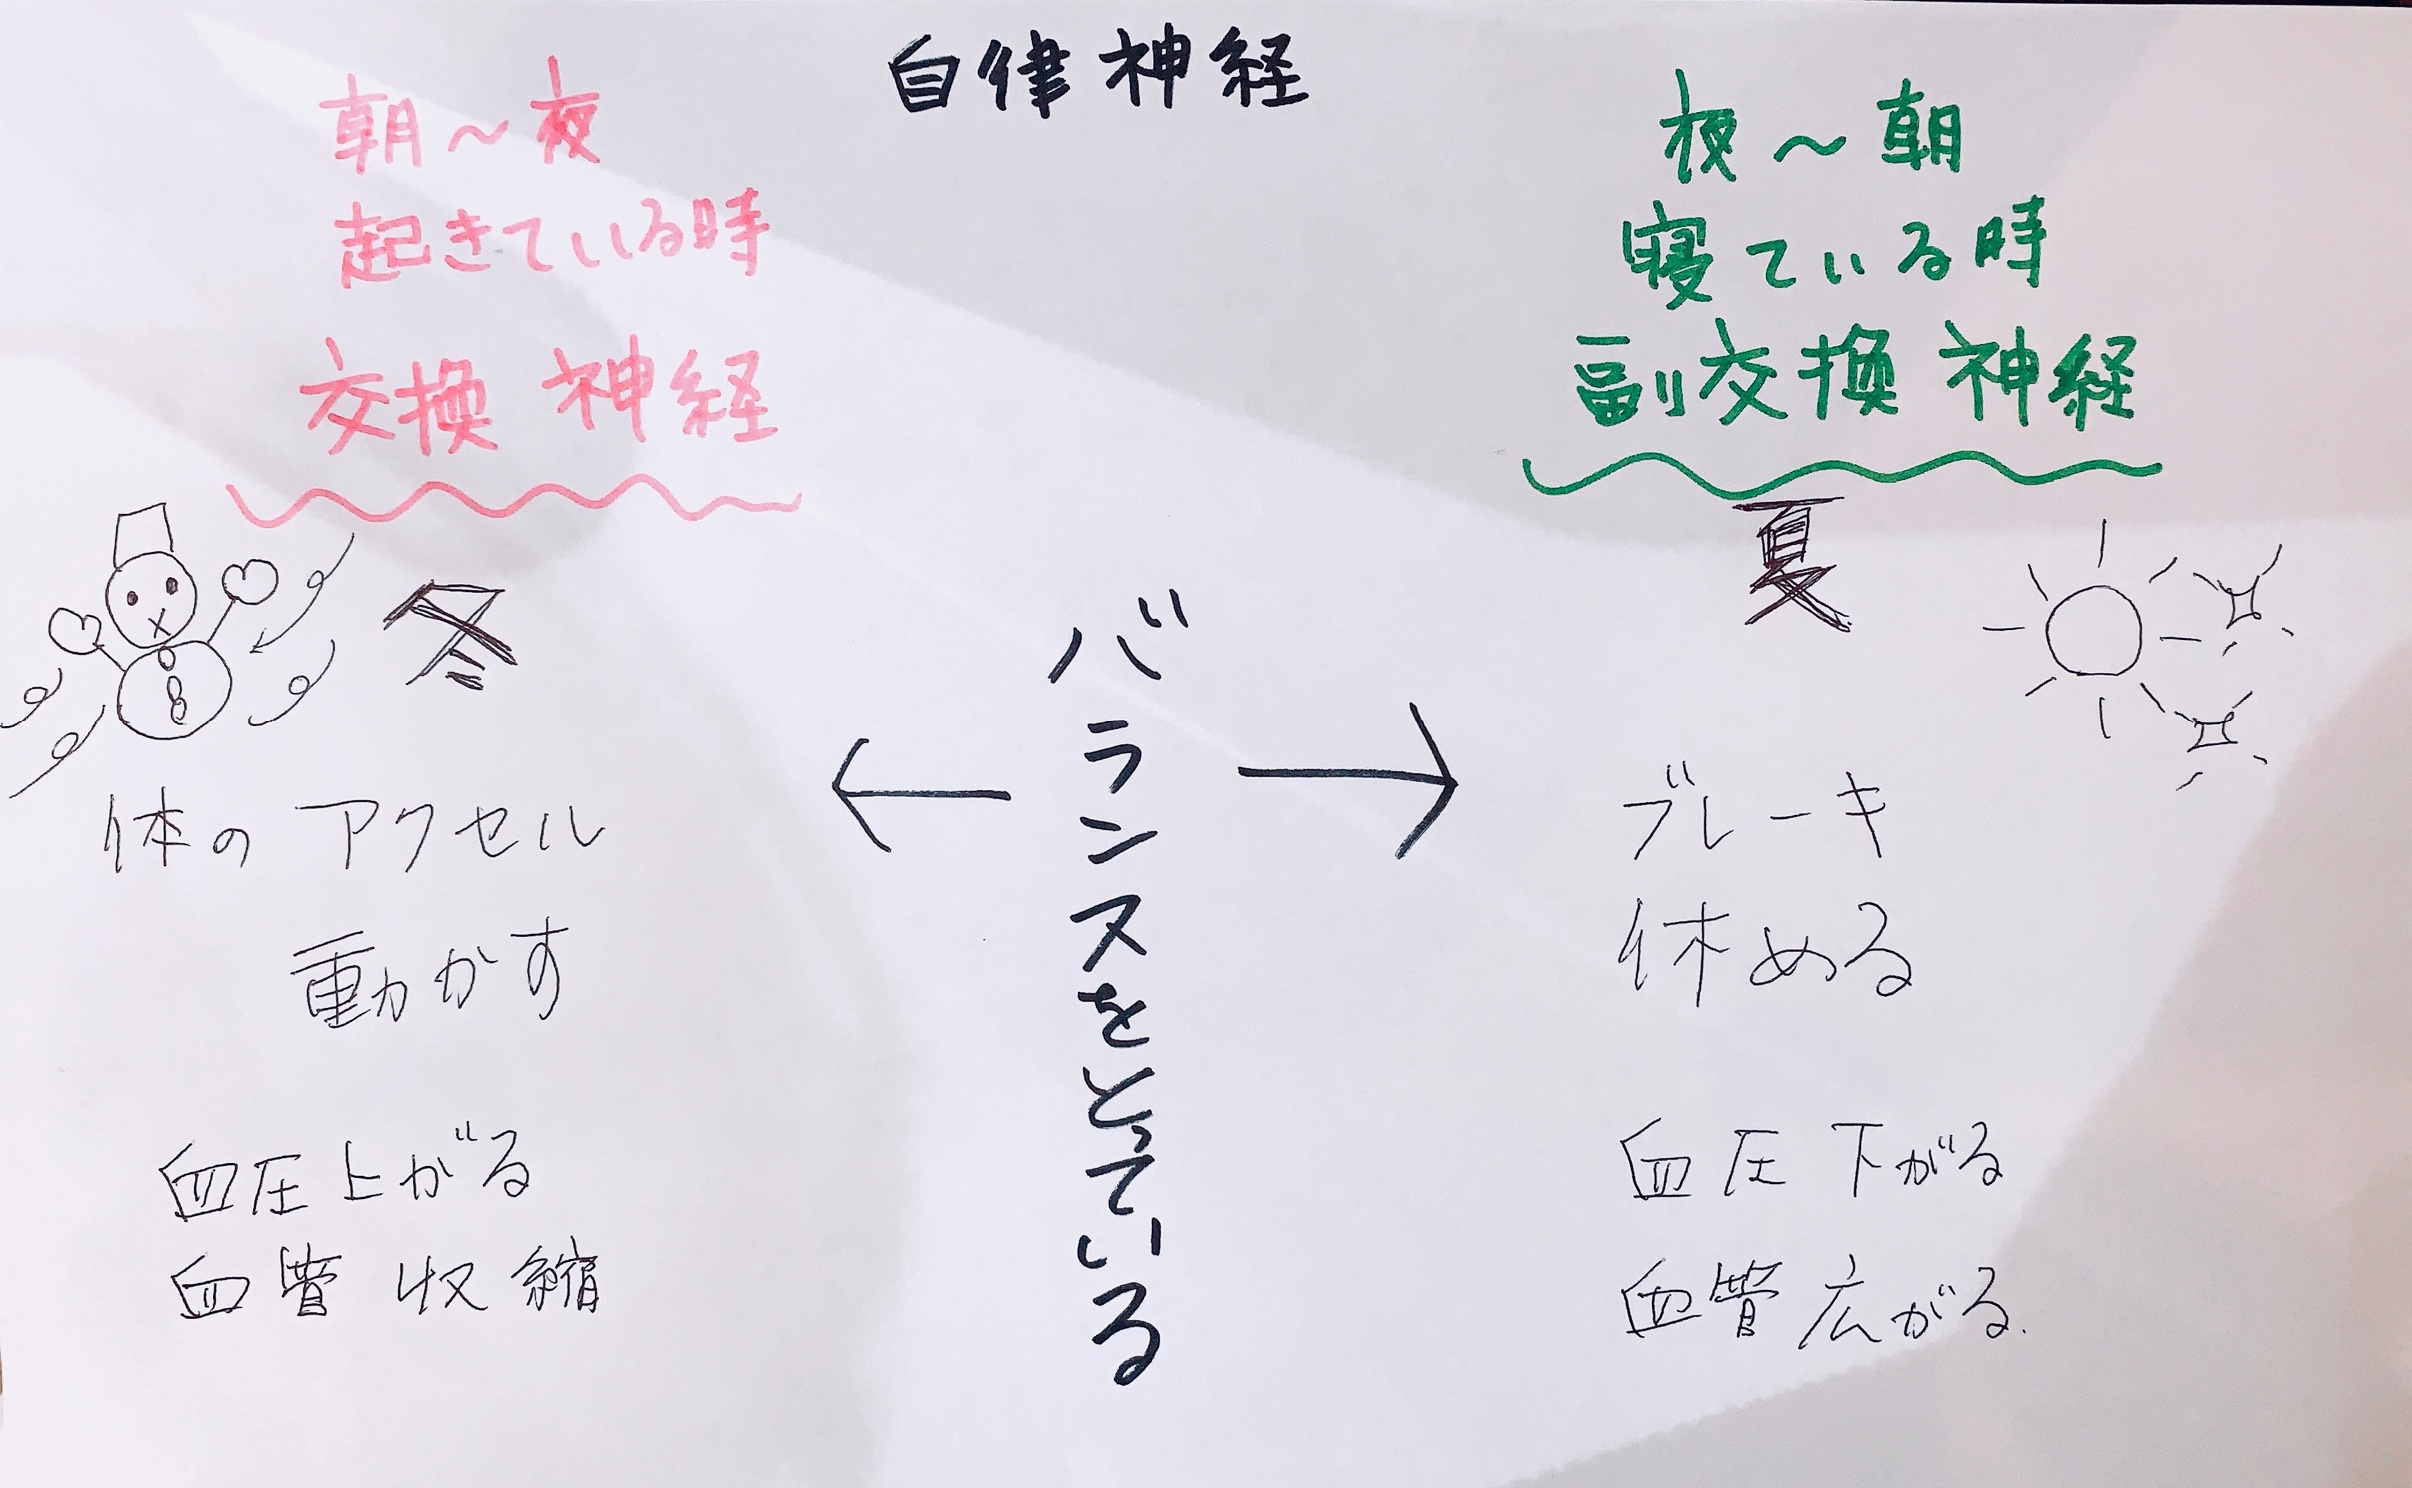 自律神経
朝〜夜
起きている時
交換神経
冬
体のアクセル
動かす
血圧上がる
血管収縮
バランスをとっている
夜〜朝
寝ている時
副交換神経
夏
ブレーキ
休める
血圧下がる
血管広がる.